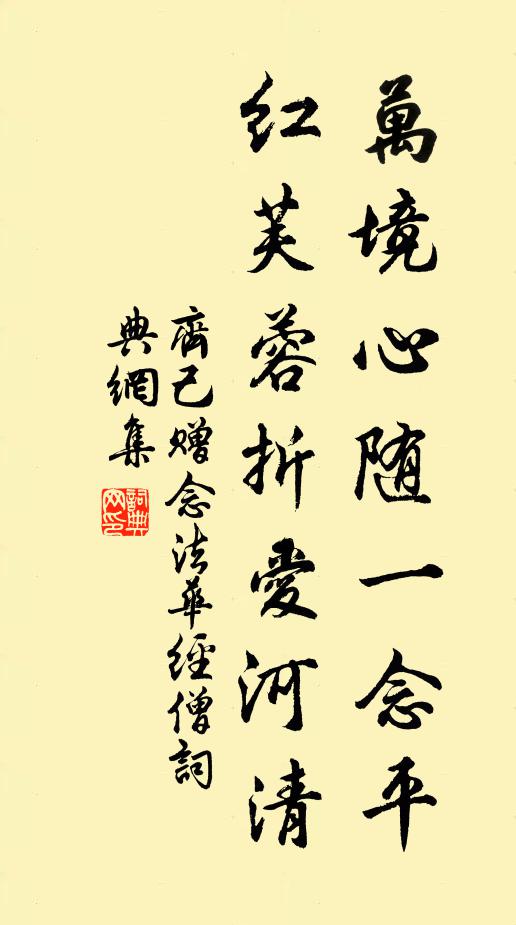 萬境心隨一念平
紅芙蓉折愛河清
齊己贈念法華經僧詞
典網集
詞典
网印